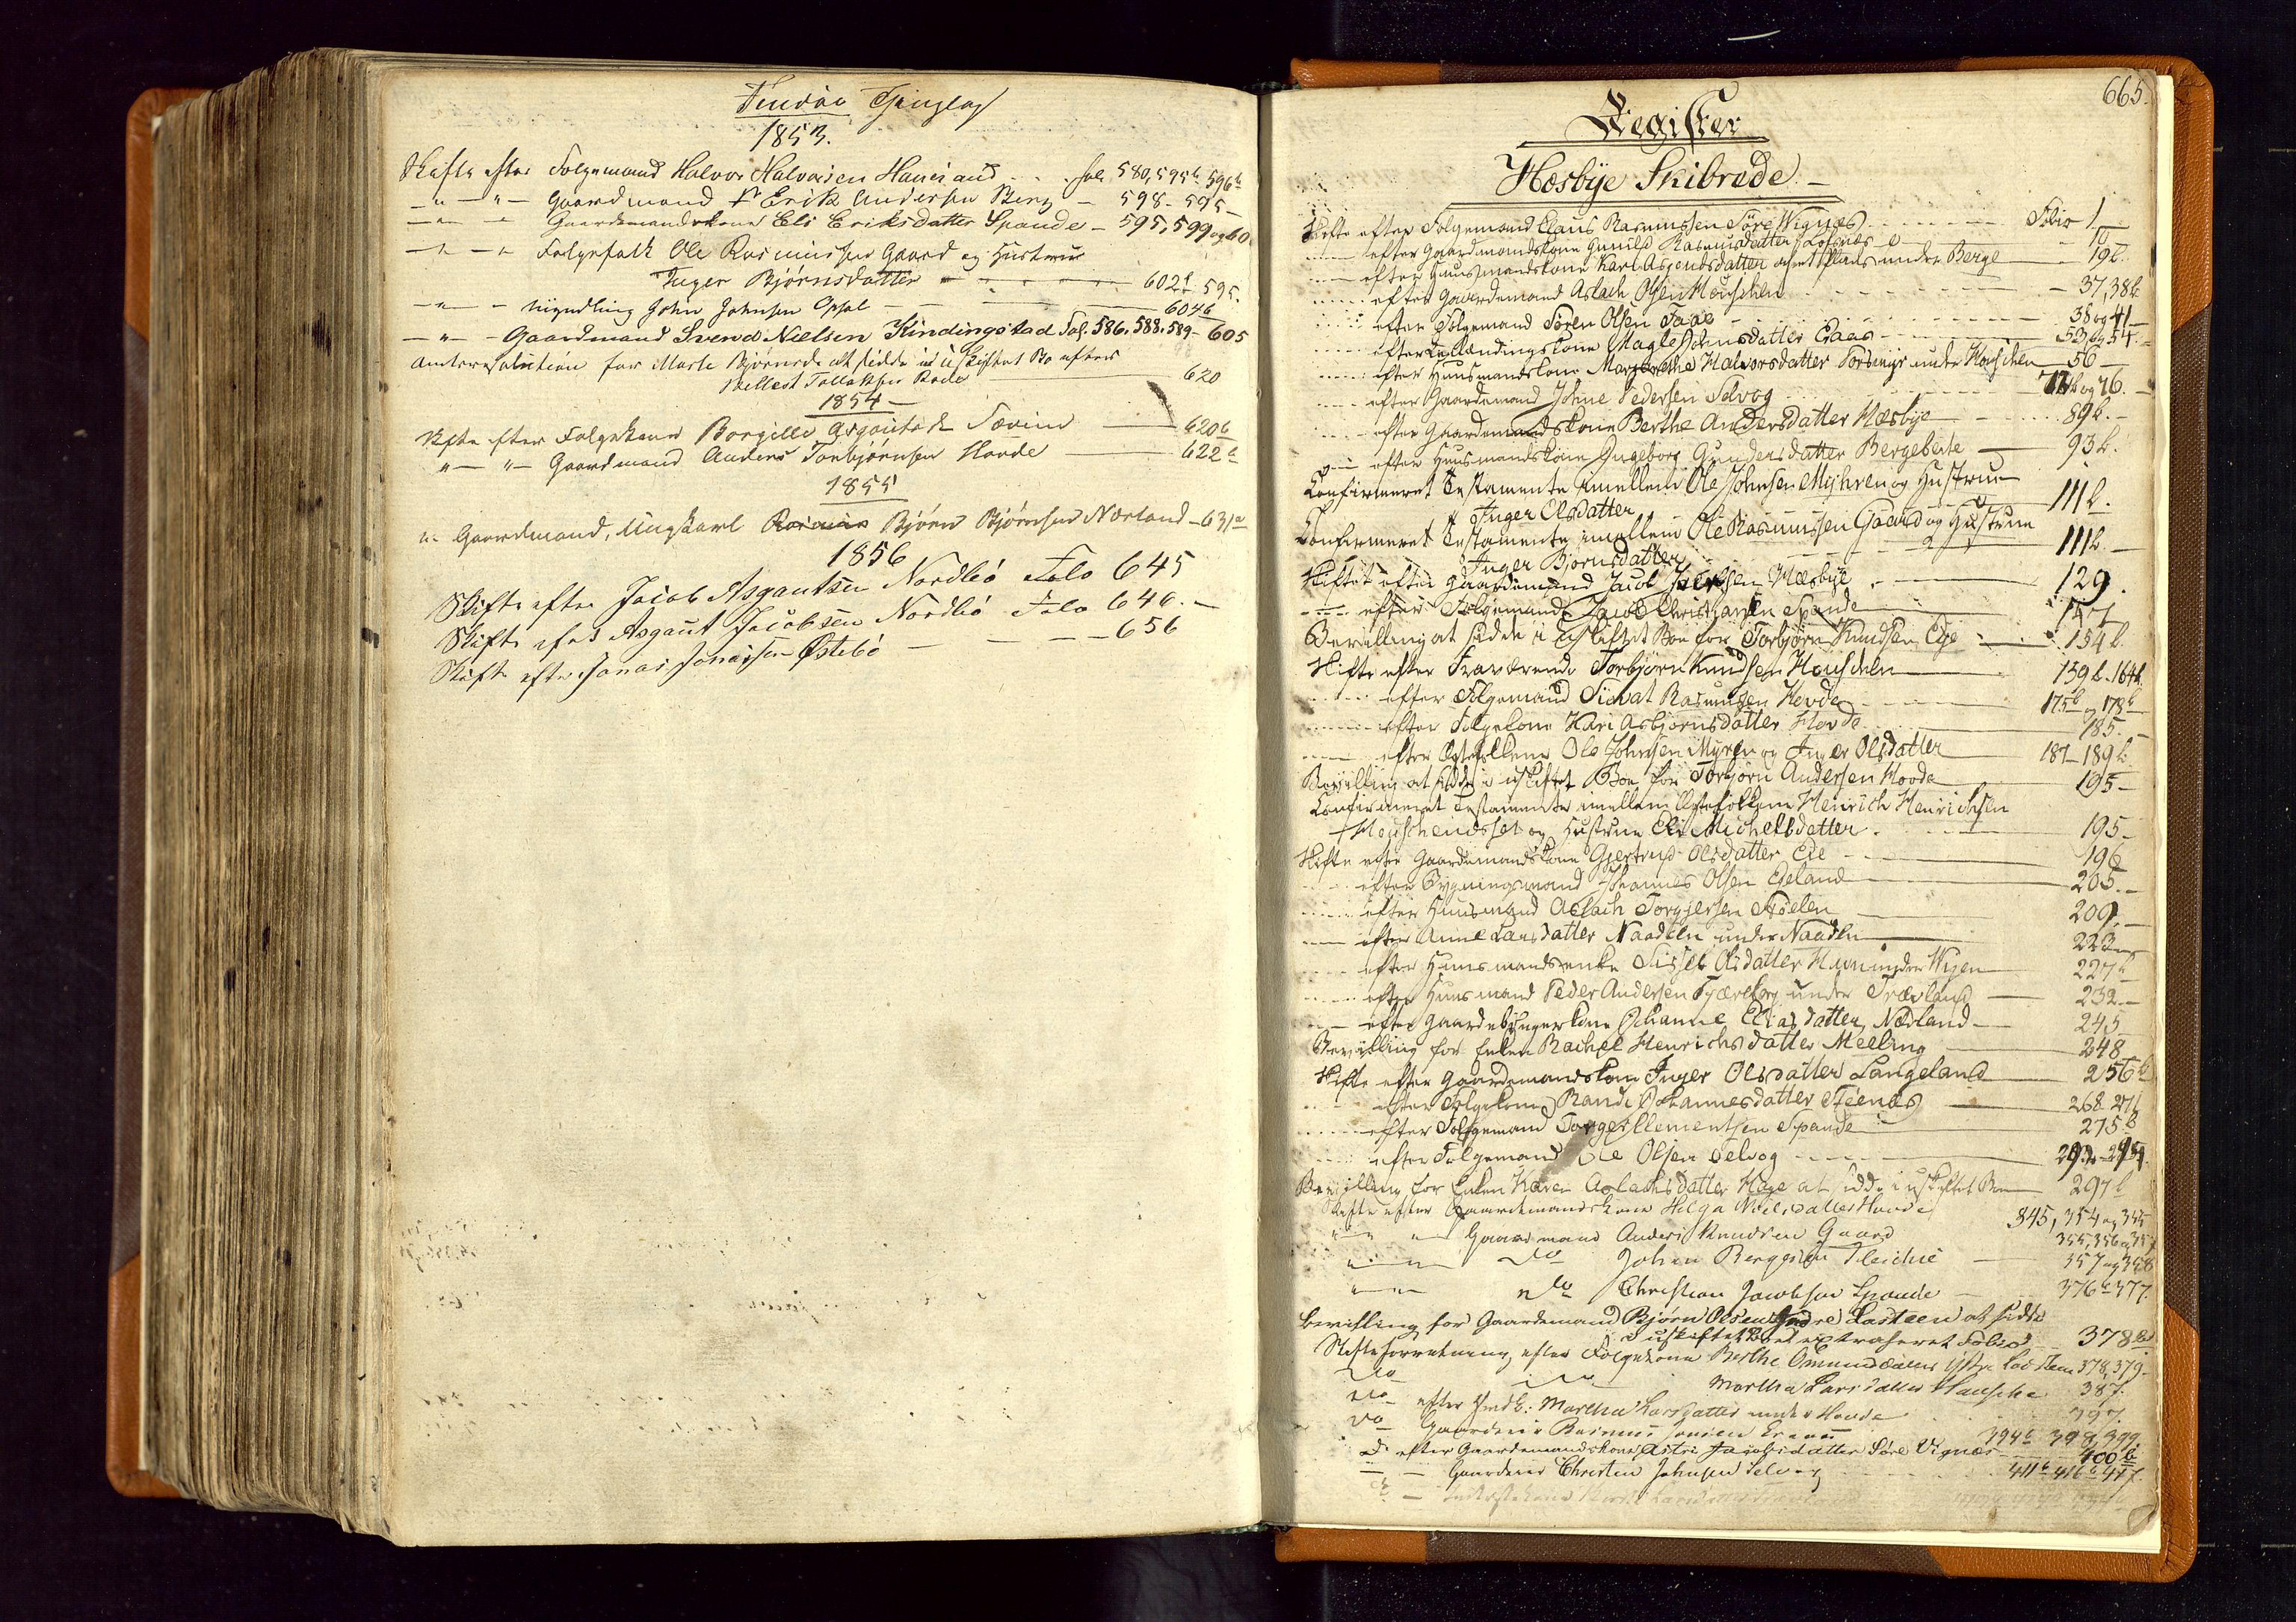 Finnöe Thinglag
1853.
Skifte efter Folgemand Halvor Halvorsen fol. 580, 595b 596b
—"— "— Gaardmand Erik Andersen Berg — 598 - 595 —
—"— — Gaardmandskone Eli Eriksdatter Spande — 595, 599 og 60
—"— — " Folgefolk Ole Rasmussen Gaard og Hustrue
Inger Bjørnsdatter — 602b 595.
—"— — Myndling John Johnsen Opsal — 604b
—"— Gaardmand Svend Nielsen Kindingstad Fol. 586. 588. 589 - 605
Amtsresolution for Marte Bjørnsd. at sidde i uskiftet Bo efter
Tollaksen 620
1854 —
Skifte efter Folgekone Borgille Asgautsdr. 620b
"— "— Gaardmand Anders Torbjørnsen Hovde — 622b
1855
"— Gaardmand, Ungkarl Bjørn Bjørnsen Norland — 631a
1856
Skifte efter Jacob Asgautsen Nordbö Folo 645
Skifte efter Asgaut Jacobsen Nordbö Folo 646. —
Skifte efter Jonas Jonassen Østebö — — — 656
665.
Register
Hæsbye Skibrede. —
Skifte efter Folgemand Claus Rasmussen Søre Wignes Folio 1
efter Gaardmandskone Gunild Rasmusdatter 10
efter Huusmandskone Kari Asgoudsdatter Plads under Berge 19b.
efter Gaardemand Aslach Olsen Houschen 37, 38b
efter Folgemand Søren Olsen 38 og 41
efter Magle Johnsdatter 53, og 54.
efter Huusmandskone Margrethe Halvorsdatter under Houschen 56
efter Gaardemand Johne Pedersen Selvog og 76.
efter Gaardemandskone Berthe Andersdatter Hæsbye 89b. —
efter Huusmandskone Ingeborg Gundersdatter 93b.
Confirmeret Testamente imellem Ole Johnsen Myhren og Hustrue
Inger Olsdatter 111b.
Confirmeret Testamente imellem Ole Rasmussen Gaard og Hustrue
Inger Bjørnsdatter 111b. —
Skifte efter Gaardemand Jacob Jacobsen Hæsbye 129.
efter Folgemand Jacob Christiansen Spande 147
Bevilling at sidde i uskiftet Boe for Torbjørn Knudsen Eye 154b.
Skifte efter Fraværende Torbjørn Knudsen Houschen 159b. 164b.
efter Folgemand Sievat Rasmussen Hovde 175b og 178b
efter Folgekone Kari Asbjørnsdatter Hovde 185. —
efter Ægtefolkene Ole Johnsen Myren og Inger Olsdatter 187 - 189b.
Bevilling at sidde i uskiftet Boe for Torbjørn Andersen Hovde 195 —
Confirmeret Testamente imellem Ægtefolkene Henrich Henrichsen
og Hustrue Eli Michelsdatter 195 —
Skifte efter Gaardemandskone Gjertrud Olsdatter Eie 196
efter Bygningsmand Johannes Olsen Egeland 205. —
efter Huusmand Aslach Torgiersen 209. —
efter Anne Larsdatter Naaden under Naaden 223
efter Huusmandsenke Sissel Olsdatter 227b
efter Huusmand Peder Andersen under 232 —
efter Johanne Eliasdatter Nærland 245
Bevilling for Enken Rachel Henrichsdatter Meeling 248
Skifte efter Gaardemandskone Inger Olsdatter Langeland 256b
efter Folgekone Randi Johannesdatter 268 271
efter Folgemand Torger Clementsen Spande 275b
efter Folgemand Ole Olsen Selvog
Bevilling for Enken Karen Aslachsdatter Hage at sidde i uskiftet Boe 297b
Skifte efter Gaardemandskone Helga Nielsdatter Hovde 345, 354 og 355
"— "— Gaardmand Anders Knudsen Gaard 355, 356 og 357
"— — do Johan 357 og 358
"— — do Christian Jacobsen Spande 376b 377.
Bevilling for Gaardemand Bjørn Olsen Lasteen at sidde
i uskiftet Boe Folio 378b.
Skifteforretning efter Folgekone Berthe Omundsdatter 378, 379
do do Martha Larsdatter 387.
do efter Martha Larsdatter under Hovde 397.
do Gaardmand Rasmus 394b 398, 399.
do efter Gaardemandskone Astri Jacobsdatter Søre Vignæs 400b
— — Gaardmand Christen Johnsen Selvog 411b 416b 417.